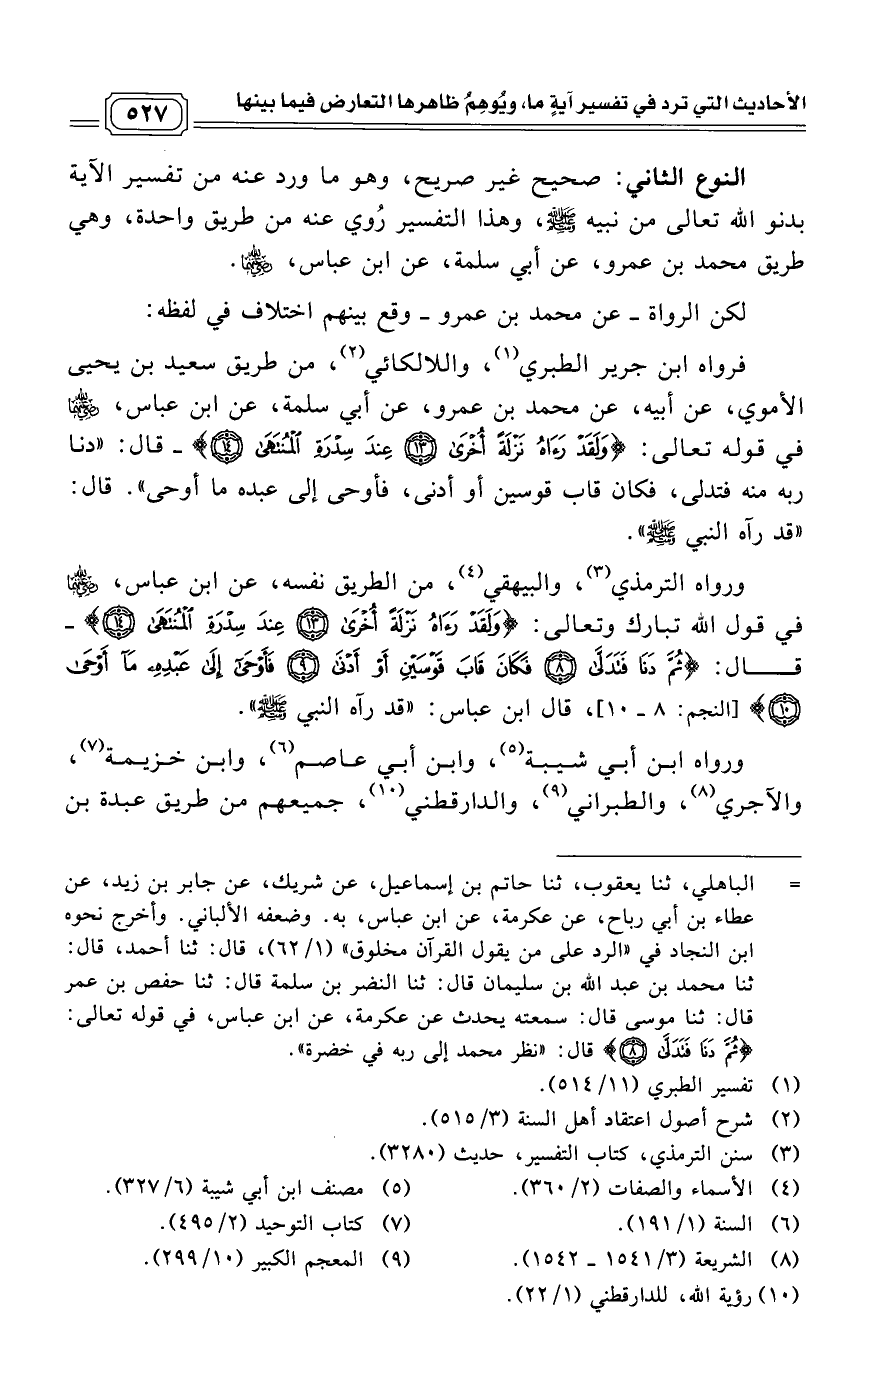 الأحاديث التي ترد في تفسير آيةٍ ما، ويُوهِمُ ظاهرها التعارض فيما بينها
٥٢٧
النوع الثاني: صحيح غير صريح، وهو ما ورد عنه من تفسير الآية
بدنو الله تعالى من نبيه ﷺ، وهذا التفسير رُوي عنه من طريق واحدة، وهي
طريق محمد بن عمرو، عن أبي سلمة، عن ابن عباس، رضي الله عنهما.
لكن الرواة ـ عن محمد بن عمرو ـ وقع بينهم اختلاف في لفظه:
فرواه ابن جرير الطبري(١)، واللالكائي(٢)، من طريق سعيد بن يحيى
الأموي، عن أبيه، عن محمد بن عمرو، عن أبي سلمة، عن ابن عباس، رضي الله عنهما
في قوله تعالى: ﴿وَلَقَدْ رَءَاهُ نَزْلَةً أُخْرَىٰ ١٣ عِندَ سِدْرَةِ ٱلْمُنتَهَىٰ ١٤﴾ ـ قال: «دنا
ربه منه فتدلى، فكان قاب قوسين أو أدنى، فأوحى إلى عبده ما أوحى». قال:
«قد رآه النبي ﷺ».
ورواه الترمذي(٣)، والبيهقي(٤)، من الطريق نفسه، عن ابن عباس، رضي الله عنهما
في قول الله تبارك وتعالى: ﴿وَلَقَدْ رَءَاهُ نَزْلَةً أُخْرَىٰ ١٣ عِندَ سِدْرَةِ ٱلْمُنتَهَىٰ ١٤﴾ ـ
قـــال: ﴿ثُمَّ دَنَا فَتَدَلَّىٰ ٨ فَكَانَ قَابَ قَوْسَيْنِ أَوْ أَدْنَىٰ ٩ فَأَوْحَىٰٓ إِلَىٰ عَبْدِهِۦ مَآ أَوْحَىٰ
١٠﴾ [النجم: ٨ ـ ١٠]، قال ابن عباس: «قد رآه النبي ﷺ».
ورواه ابن أبي شيبة(٥)، وابن أبي عاصم(٦)، وابن خزيمة(٧)،
والآجري(٨)، والطبراني(٩)، والدارقطني(١٠)، جميعهم من طريق عبدة بن
= الباهلي، ثنا يعقوب، ثنا حاتم بن إسماعيل، عن شريك، عن جابر بن زيد، عن
عطاء بن أبي رباح، عن عكرمة، عن ابن عباس، به. وضعفه الألباني. وأخرج نحوه
ابن النجاد في «الرد على من يقول القرآن مخلوق» (١/ ٦٢)، قال: ثنا أحمد، قال:
ثنا محمد بن عبد الله بن سليمان قال: ثنا النضر بن سلمة قال: ثنا حفص بن عمر
قال: ثنا موسى قال: سمعته يحدث عن عكرمة، عن ابن عباس، في قوله تعالى:
﴿ثُمَّ دَنَا فَتَدَلَّىٰ ٨﴾ قال: «نظر محمد إلى ربه في خضرة».
(١) تفسير الطبري (١١/ ٥١٤).
(٢) شرح أصول اعتقاد أهل السنة (٣/ ٥١٥).
(٣) سنن الترمذي، كتاب التفسير، حديث (٣٢٨٠).
(٤) الأسماء والصفات (٢/ ٣٦٠).
(٥) مصنف ابن أبي شيبة (٦/ ٣٢٧).
(٦) السنة (١/ ١٩١).
(٧) كتاب التوحيد (٢/ ٤٩٥).
(٨) الشريعة (٣/ ١٥٤١ ـ ١٥٤٢).
(٩) المعجم الكبير (١٠/ ٢٩٩).
(١٠) رؤية الله، للدارقطني (١/ ٢٢).